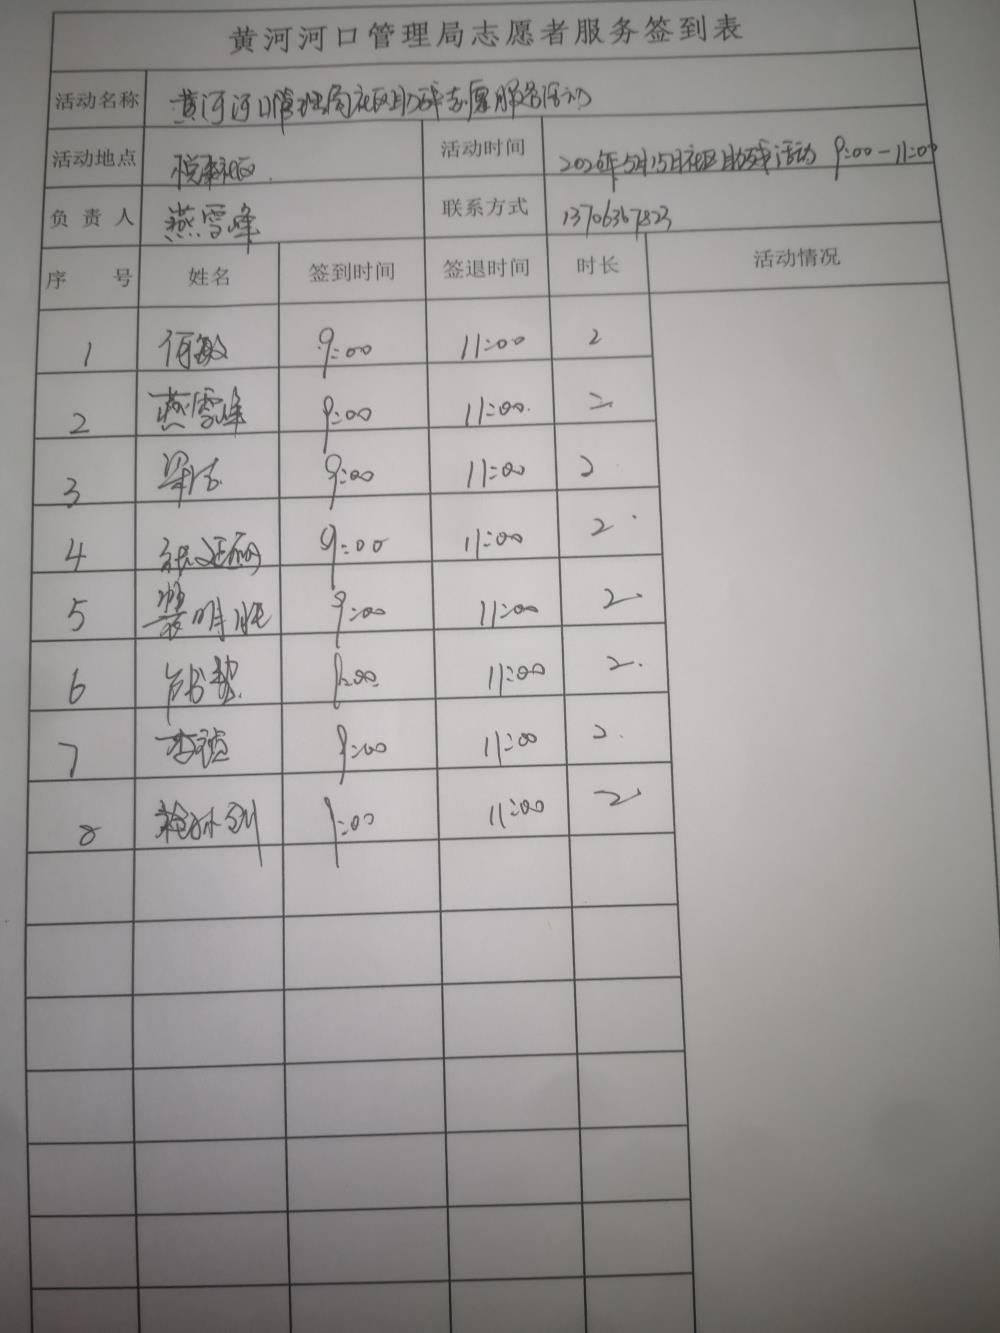 黄河河口管理局志愿者服务签到表
活动名称 黄河河口管理局社区助残志愿服务活动
活动地点 悦来社区 活动时间 2026年5月15日社区助残活动 9:00-11:00
负责人 燕雪峰 联系方式 13706367823
序号 姓名 签到时间 签退时间 时长 活动情况
1 何敏 9:00 11:00 2
2 燕雪峰 9:00 11:00 2
3 梁洁 9:00 11:00 2
4 9:00 11:00 2
5 裴明胜 9:00 11:00 2
6 9:00 11:00 2
7 9:00 11:00 2
8 9:00 11:00 2